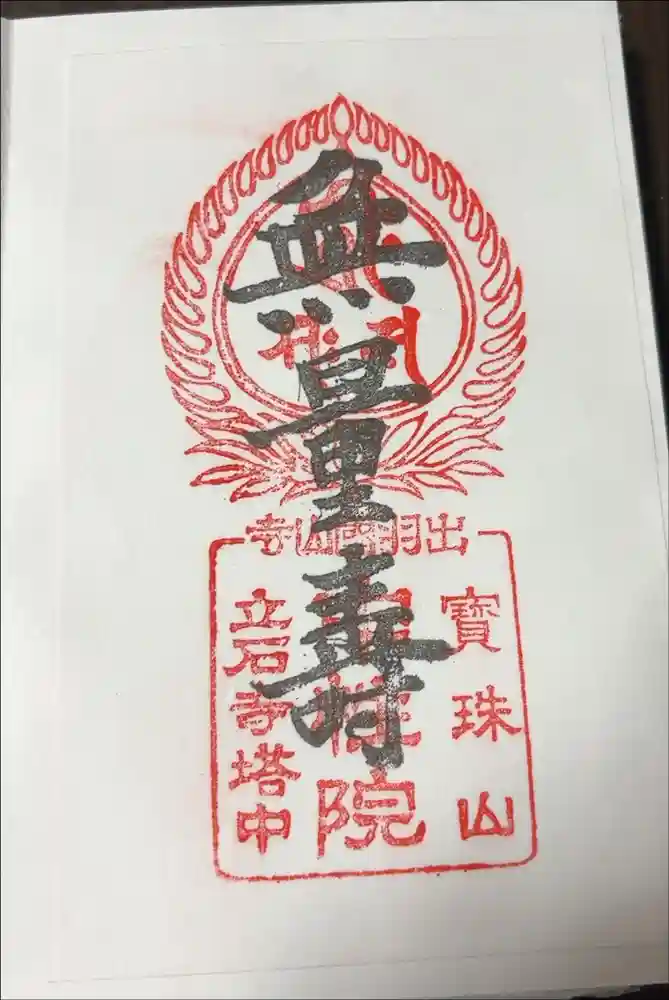 無量寿
出羽國山寺
寶珠山
院
立石寺塔中